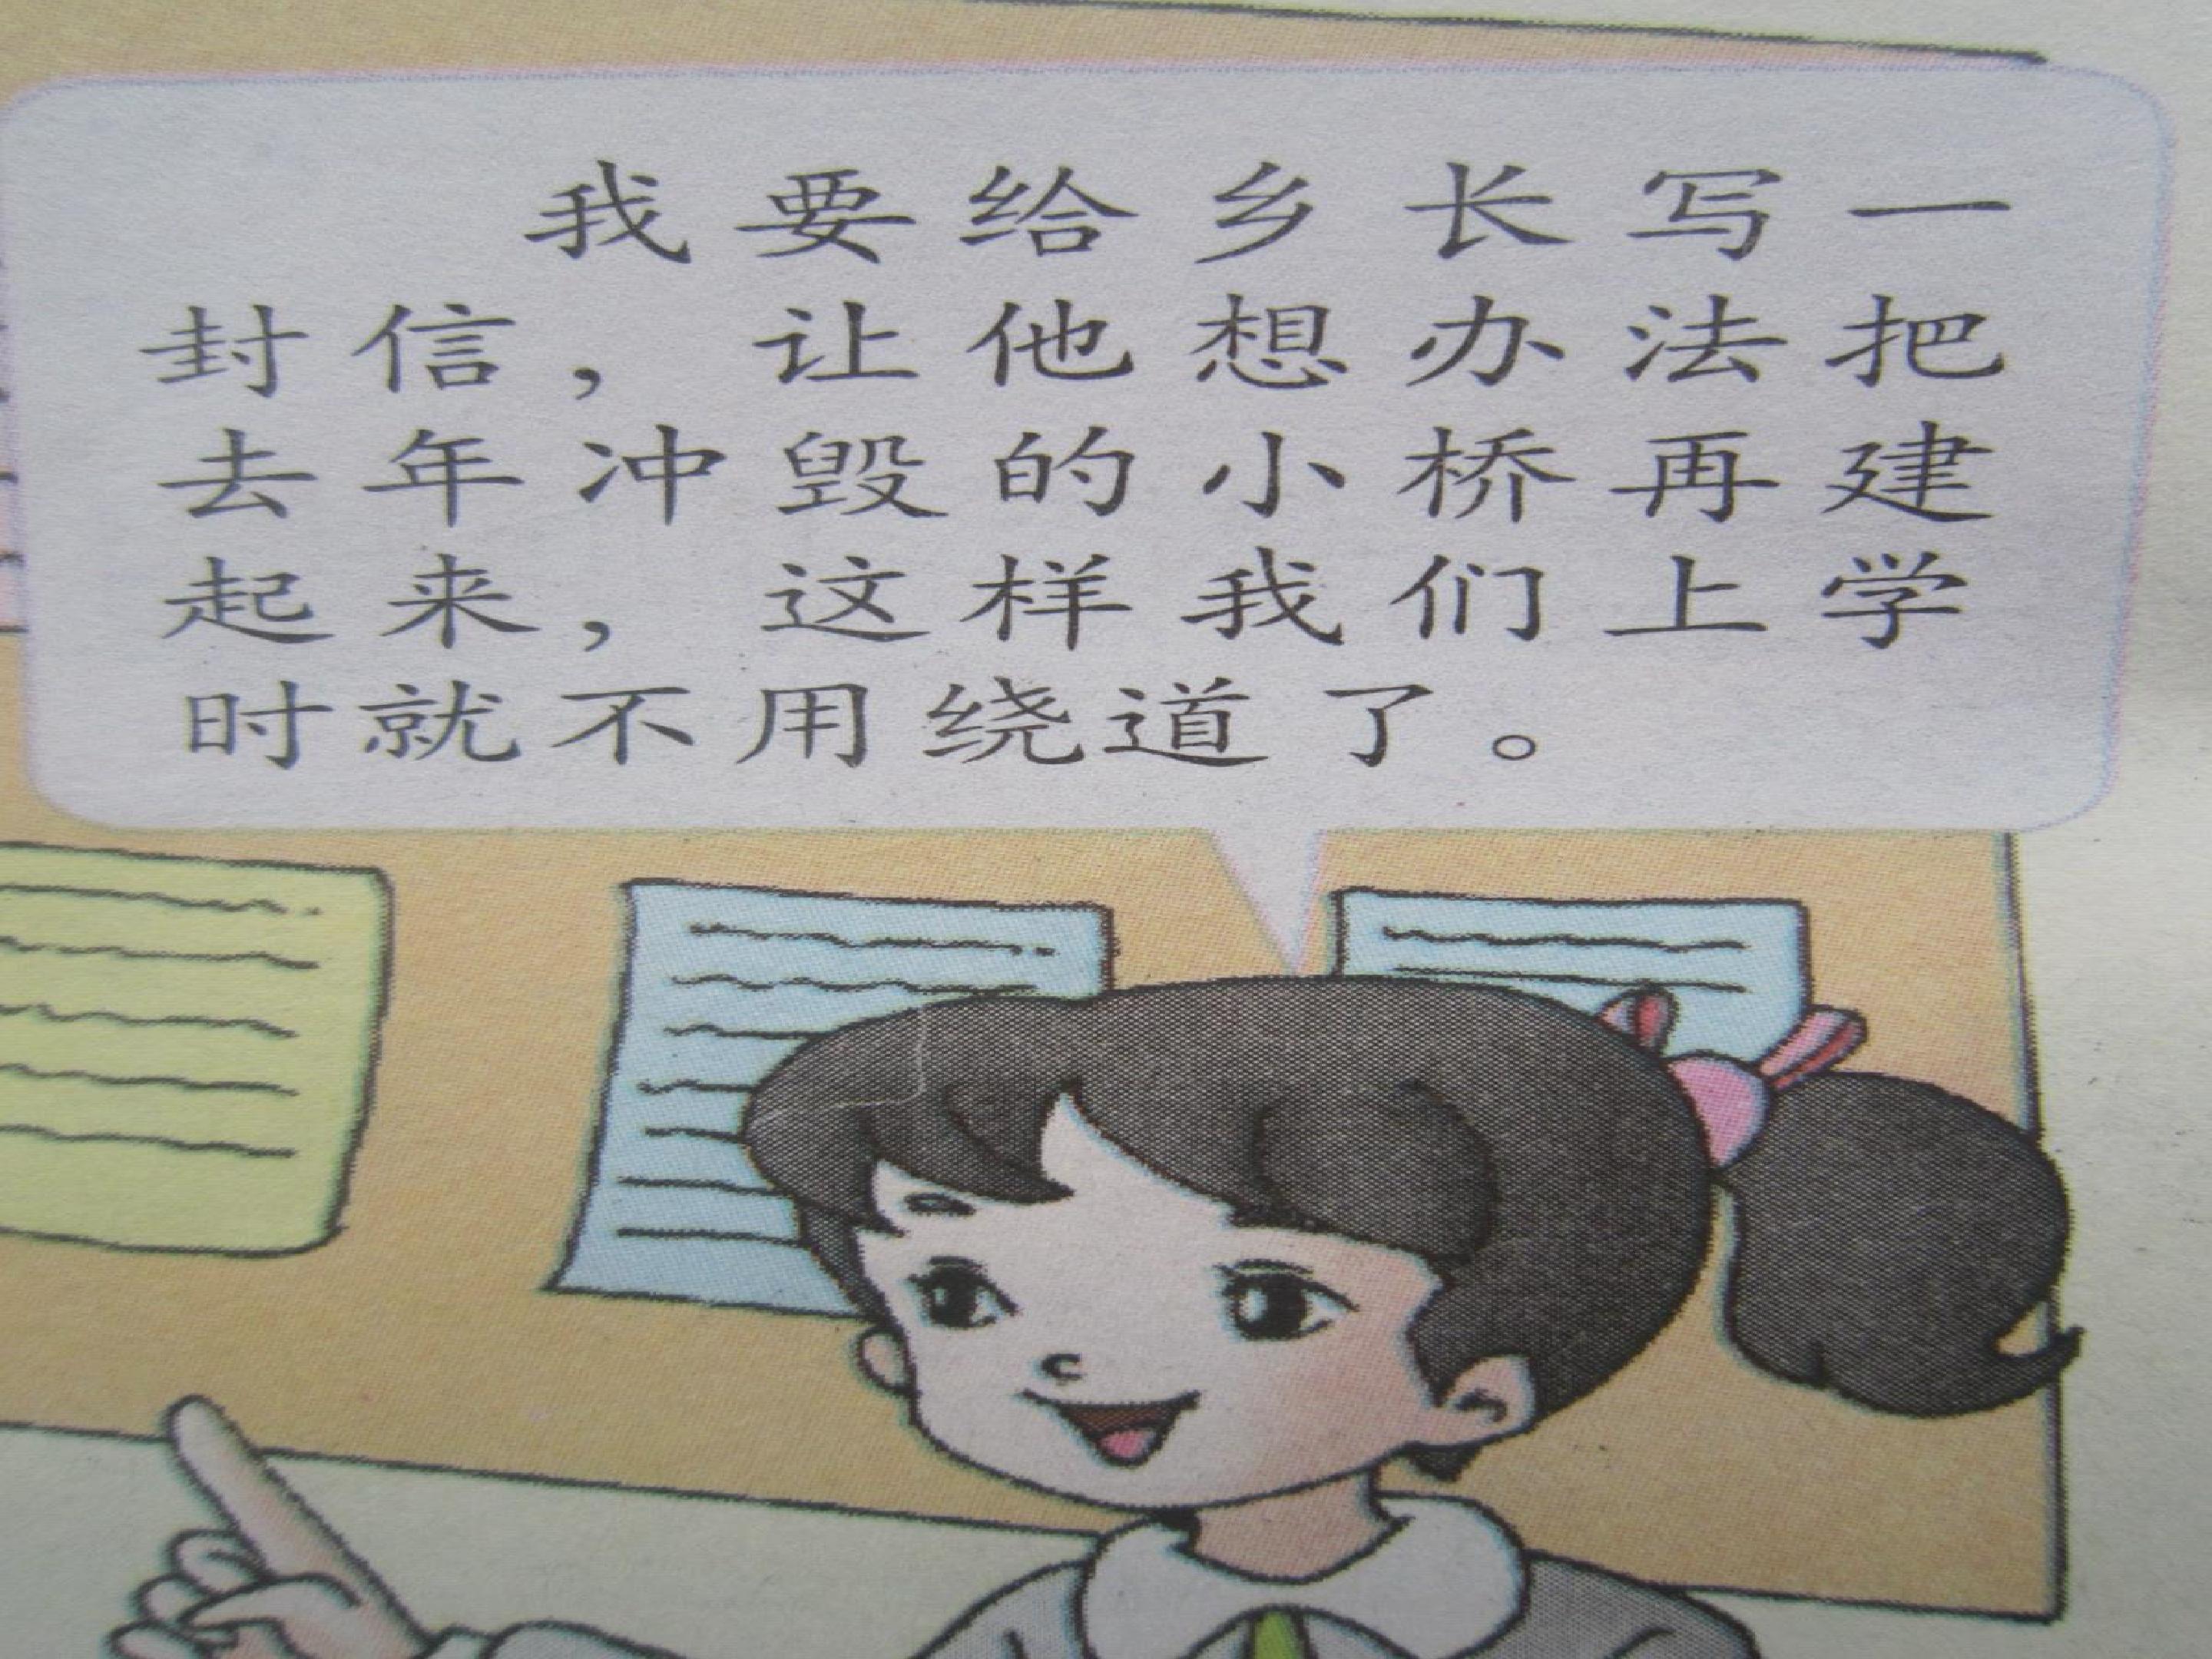 我要给乡长写一
封信，让他想办法把
去年冲毁的小桥再建
起来，这样我们上学
时就不用绕道了。